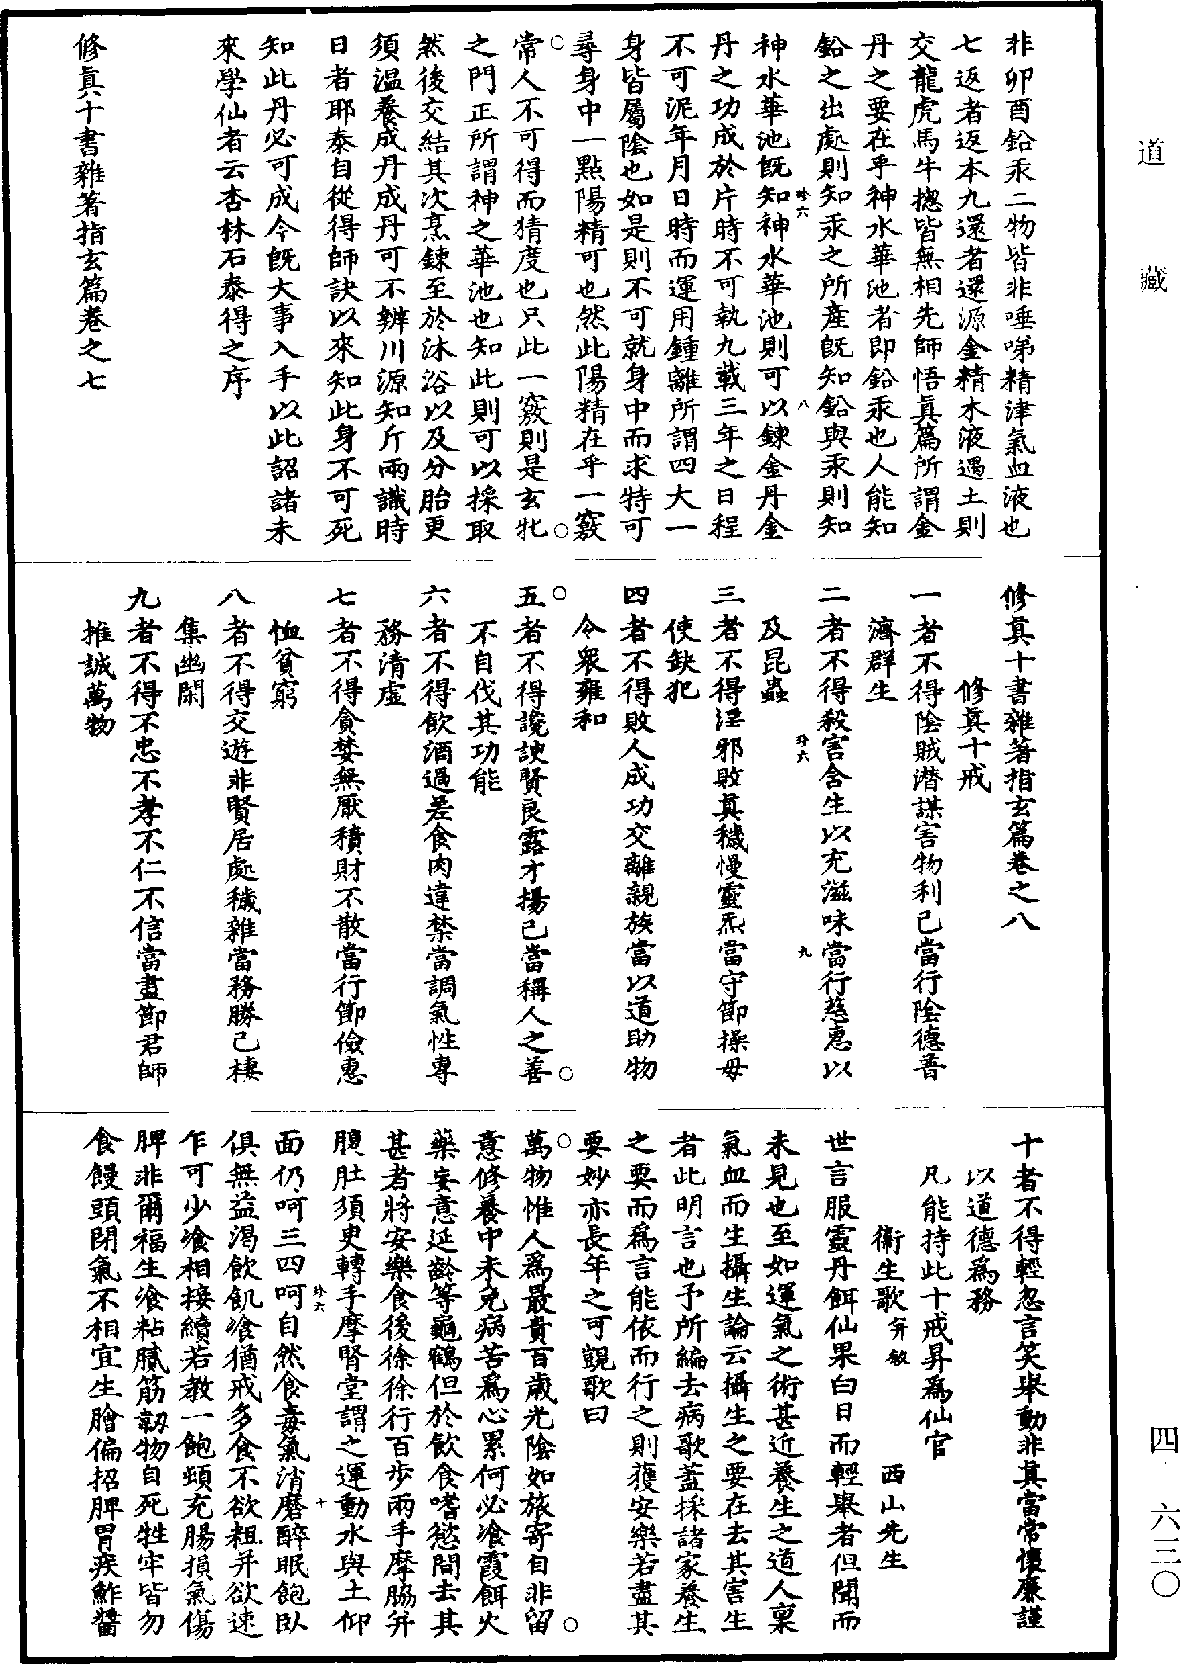 道藏
四
六三〇
非卯酉鉛汞二物皆非唾唏精津氣血液也
七返者返本九還者還源金精木液遇土則
交龍虎馬牛摠皆無相先師悟真篇所謂金
丹之要在乎神水華池者即鉛汞也人能知
鉛之出處則知汞之所産既知鉛與汞則知
珍六
八
神水華池既知神水華池則可以鍊金丹金
丹之功成於片時不可執九載三年之日程
不可泥年月日時而運用鍾離所謂四大一
身皆屬陰也如是則不可就身中而求特可
尋身中一點陽精可也然此陽精在乎一竅
常人不可得而猜度也只此一竅則是玄牝
之門正所謂神之華池也知此則可以採取
然後交結其次烹鍊至於沐浴以及分胎更
須温養成丹成丹可不辨川源知斤兩識時
日者耶泰自從得師訣以來知此身不可死
知此丹必可成今既大事入手以此詔諸未
來學仙者云杏林石泰得之序
修真十書雜著指玄篇卷之七
修真十書雜著指玄篇卷之八
修真十戒
一者不得陰賊潛謀害物利己當行陰德普
濟群生
二者不得殺害含生以充滋味當行慈惠以
及昆蟲
珍六
九
三者不得淫邪敗真穢慢靈炁當守節操毋
使缺犯
四者不得敗人成功交離親族當以道助物
令衆雍和
五者不得讒諛賢良露才揚己當稱人之善
不自伐其功能
六者不得飲酒過差食肉違禁當調氣性專
務清虛
七者不得貪婪無厭積財不散當行節儉惠
恤貧窮
八者不得交遊非賢居處穢雜當務勝己棲
集幽閑
九者不得不忠不孝不仁不信當盡節君師
推誠萬物
十者不得輕忽言笑舉動非真當常懷廉謹
以道德爲務
凡能持此十戒昇爲仙官
衛生歌并敘　　西山先生
世言服靈丹餌仙果白日而輕舉者但聞而
未見也至如運氣之術甚近養生之道人稟
氣血而生攝生論云攝生之要在去其害生
者此明言也予所編去病歌蓋採諸家養生
之要而爲言能依而行之則獲安樂若盡其
要妙亦長年之可覬歌曰
萬物惟人爲最貴百歲光陰如旅寄自非留
意修養中未免病苦爲心累何必飡霞餌火
藥妄意延齡等龜鶴但於飲食嗜慾間去其
甚者將安樂食後徐徐行百步兩手摩脇并
腹肚須臾轉手摩腎堂謂之運動水與土仰
珍六
十
面仍呵三四呵自然食毒氣消磨醉眠飽臥
俱無益渴飲飢飡猶戒多食不欲粗并欲速
乍可少飡相接續若教一飽頓充腸損氣傷
脾非爾福生飡粘膩筋韌物自死牲牢皆勿
食饅頭閉氣不相宜生膾偏招脾胃疾鮓醬